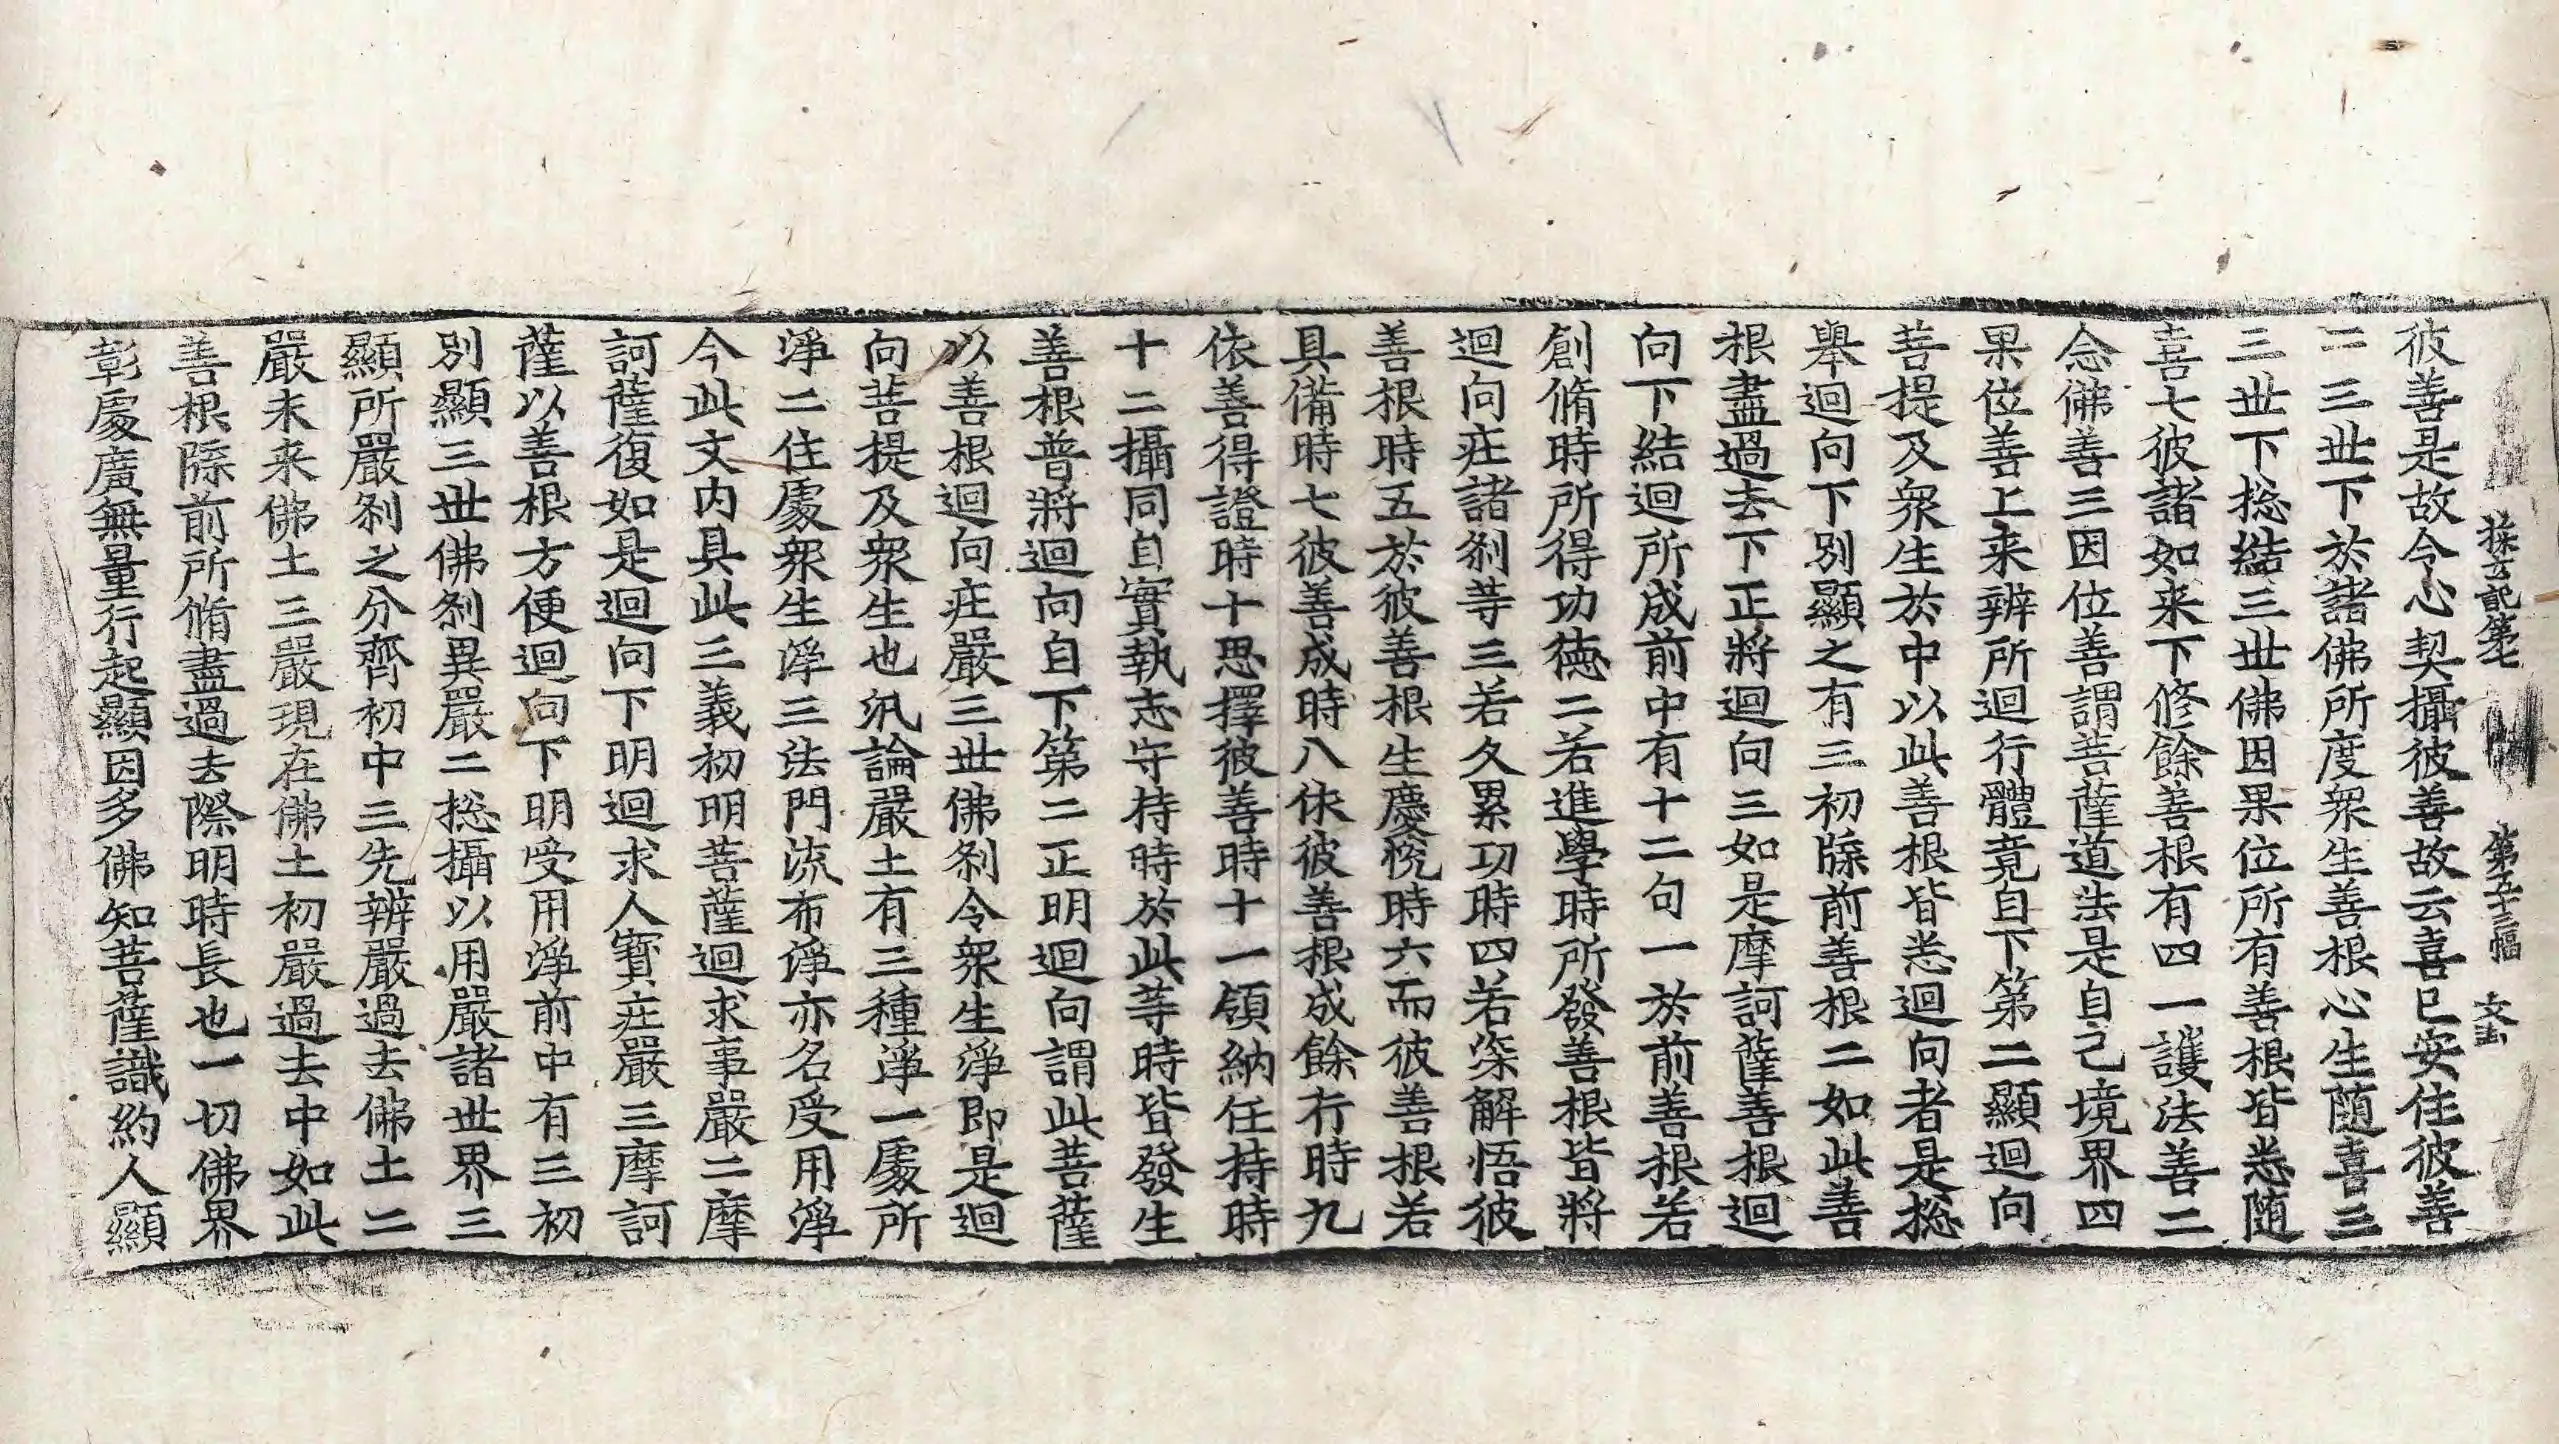 探玄記第七 第五十三幅 文玄
彼善是故令心契攝彼善故云喜已安住彼善
二三世下於諸佛所度衆生善根心生随喜三
三世下捴結三世佛因果位所有善根皆悉随
喜七彼諸如来下修餘善根有四一護法善二
念佛善三因位善謂菩薩道法是自己境界四
果位善上来辨所迴行體竟自下第二顯迴向
菩提及衆生於中以此善根皆悉迴向者是捴
舉迴向下別顯之有三初牒前善根二如此善
根盡過去下正將迴向三如是摩訶薩善根迴
向下結迴所成前中有十二句一於前善根若
創脩時所得功德二若進學時所發善根皆將
迴向庄諸刹等三若久累功時四若深解悟彼
善根時五於彼善根生慶悅時六而彼善根若
具備時七彼善成時八依彼善根成餘行時九
依善得證時十思擇彼善時十一領納任持時
十二攝同自實執志守持時於此等時皆發生
善根普將迴向自下第二正明迴向謂此菩薩
以善根迴向庄嚴三世佛刹令衆生淨即是迴
向菩提及衆生也汎論嚴土有三種淨一處所
淨二住處衆生淨三法門流布淨亦名受用淨
今此文内具此三義初明菩薩迴求事嚴二摩
訶薩復如是迴向下明迴求人寶庄嚴三摩訶
薩以善根方便迴向下明受用淨前中有三初
別顯三世佛刹異嚴二捴攝以用嚴諸世界三
顯所嚴刹之分齊初中三先辨嚴過去佛土二
嚴未来佛土三嚴現在佛土初嚴過去中如此
善根牒前所脩盡過去際明時長也一切佛界
彰處廣無量行起顯因多佛知菩薩識約人顯